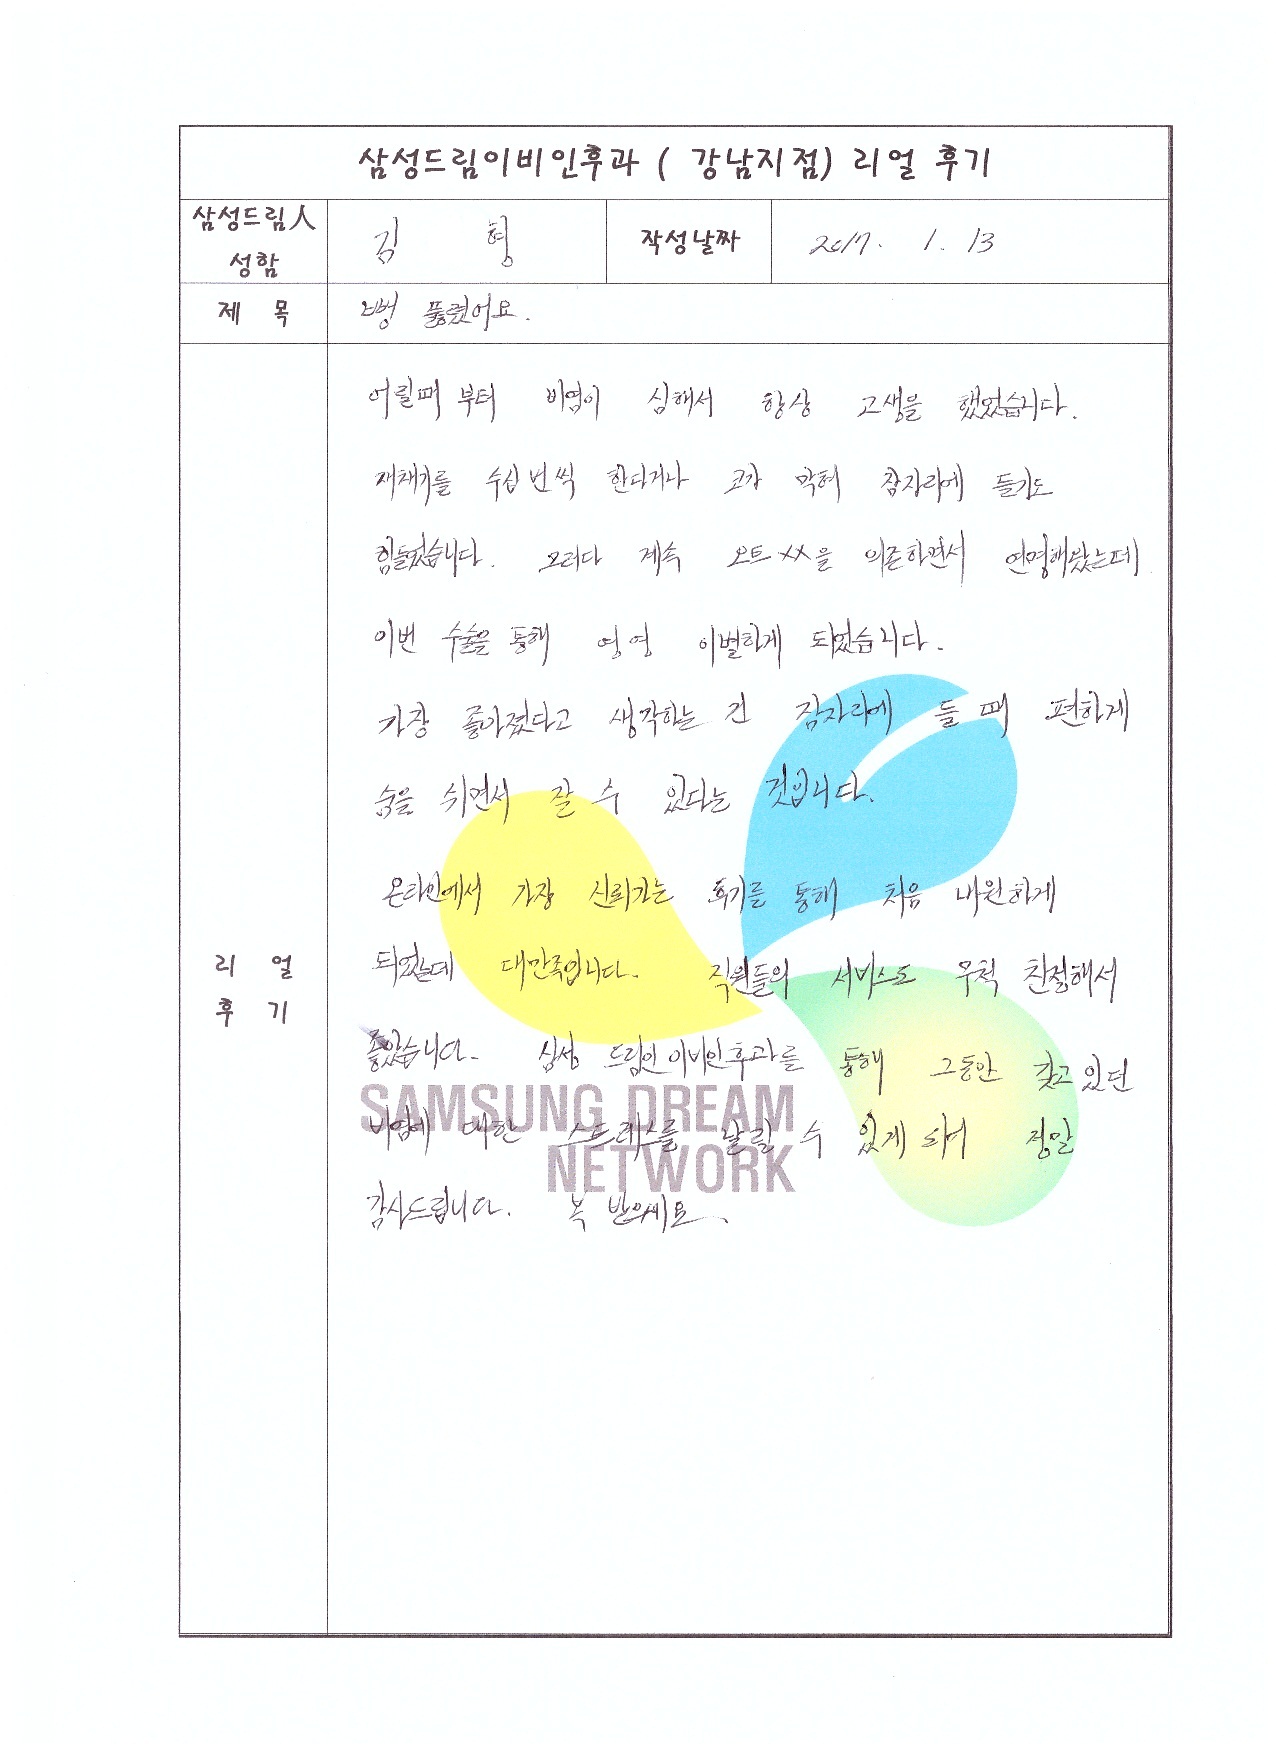 삼성드림이비인후과 ( 강남지점) 리얼 후기
삼성드림人 성함
김 형
작성날짜
2017. 1. 13
제 목
뻥 뚫렸어요.
리 얼
후 기
어릴때 부터 비염이 심해서 항상 고생을 했었습니다.
재채기를 수십번씩 한다거나 코가 막혀 잠자리에 들기도
힘들었습니다. 그러다 계속 오트××을 의존하면서 연명해왔는데
이번 수술을 통해 영영 이별하게 되었습니다.
가장 좋아졌다고 생각하는 건 잠자리에 들 때 편하게
숨을 쉬면서 잘 수 있다는 것입니다.
온라인에서 가장 신뢰가는 후기를 통해 처음 내원하게
되었는데 대만족입니다. 직원들의 서비스도 무척 친절해서
좋았습니다. 삼성 드림인 이비인후과를 통해 그동안 갖고 있던
비염에 대한 스트레스를 날릴 수 있게 되어 정말
감사드립니다. 복 받으세요.
SAMSUNG DREAM
NETWORK